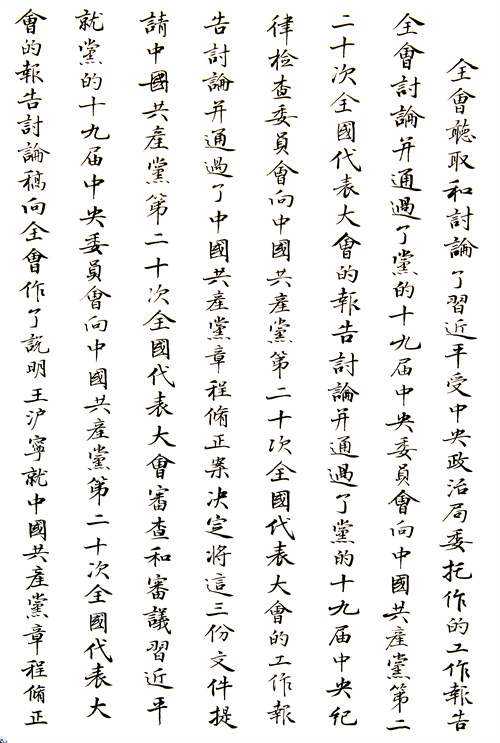 全會聽取和討論了習近平受中央政治局委托作的工作報告
全會討論并通過了黨的十九届中央委員會向中國共產黨第二
二十次全國代表大會的報告討論并通過了黨的十九届中央纪
律检查委員會向中國共產黨第二十次全國代表大會的工作報
告討論并通過了中國共產黨章程脩正案决定将這三份文件提
請中國共產黨第二十次全國代表大會審查和審議習近平
就黨的十九届中央委員會向中國共產黨第二十次全國代表大
會的報告討論稿向全會作了説明王沪寧就中國共產黨章程脩正